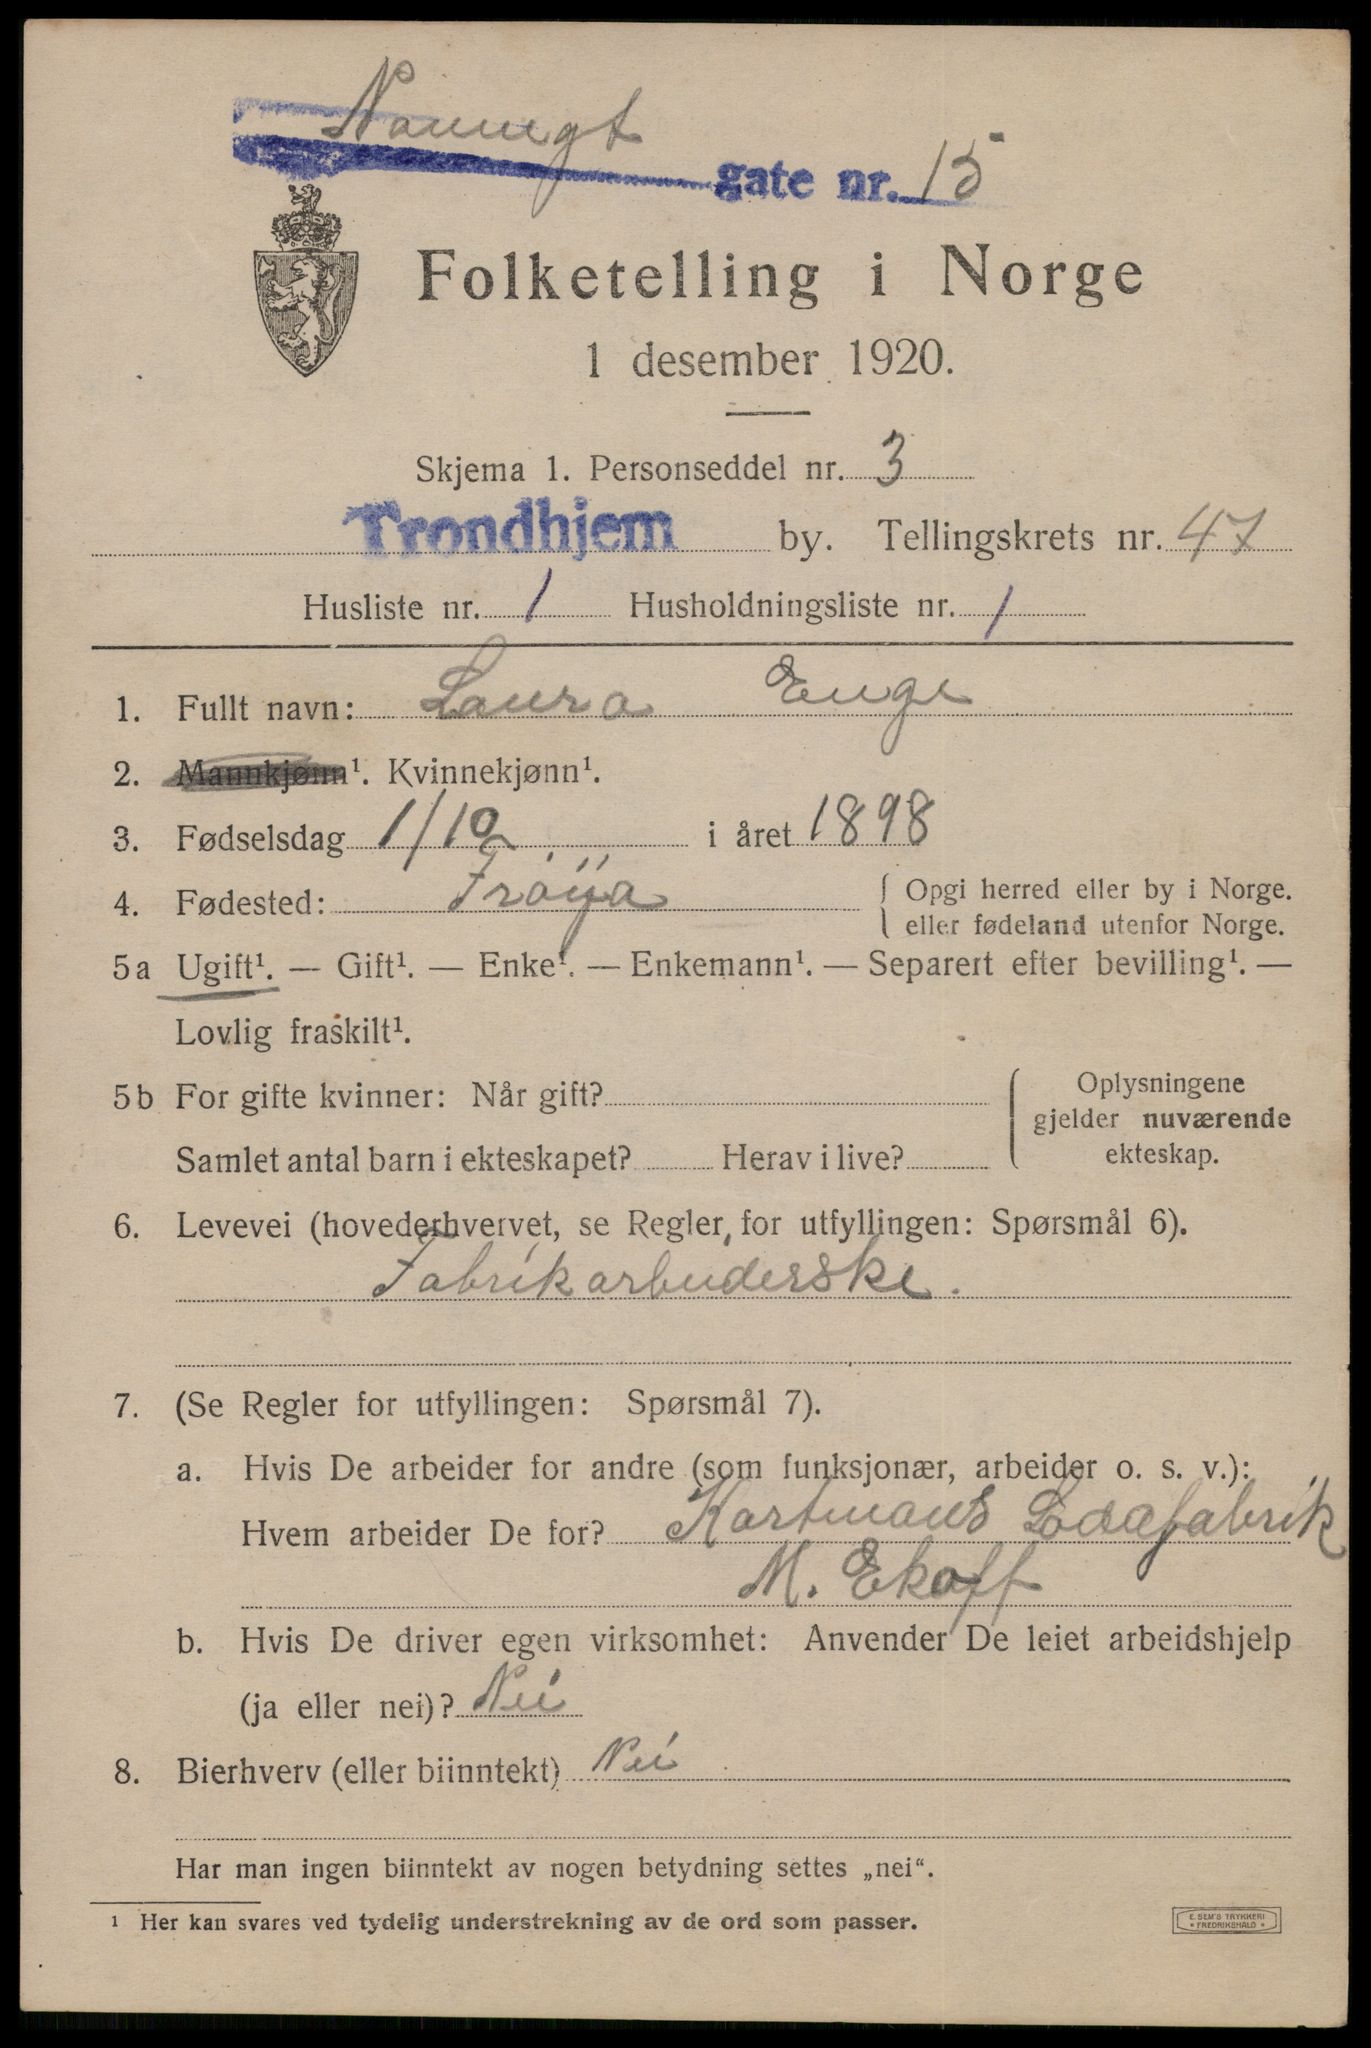 Nonnegt
gate nr. 15
Folketelling i Norge
1 desember 1920.
Skjema 1. Personseddel nr. 3
Trondhjem by. Tellingskrets nr. 47
Husliste nr. 1 Husholdningsliste nr. 1
1. Fullt navn: Laura Enge
2. Mannkjønn¹. Kvinnekjønn¹.
3. Fødselsdag 1/10 i året 1898
4. Fødested: Frøya { Opgi herred eller by i Norge.
eller fødeland utenfor Norge.
5a Ugift¹. — Gift¹. — Enke¹. — Enkemann¹. — Separert efter bevilling¹. —
Lovlig fraskilt¹.
5b For gifte kvinner: Når gift? Oplysningene
gjelder nuværende
Samlet antal barn i ekteskapet? Herav i live? ekteskap.
6. Levevei (hovederhvervet, se Regler for utfyllingen: Spørsmål 6).
Fabrikarbeiderske.
7. (Se Regler for utfyllingen: Spørsmål 7).
a. Hvis De arbeider for andre (som funksjonær, arbeider o. s. v.):
Hvem arbeider De for? Hartmans
M. Ekoff
b. Hvis De driver egen virksomhet: Anvender De leiet arbeidshjelp
(ja eller nei)? Nei
8. Bierhverv (eller biinntekt) Nei
Har man ingen biinntekt av nogen betydning settes „nei“.
¹ Her kan svares ved tydelig understrekning av de ord som passer.
E. SEM'S TRYKKERI
* FREDRIKSHALD *